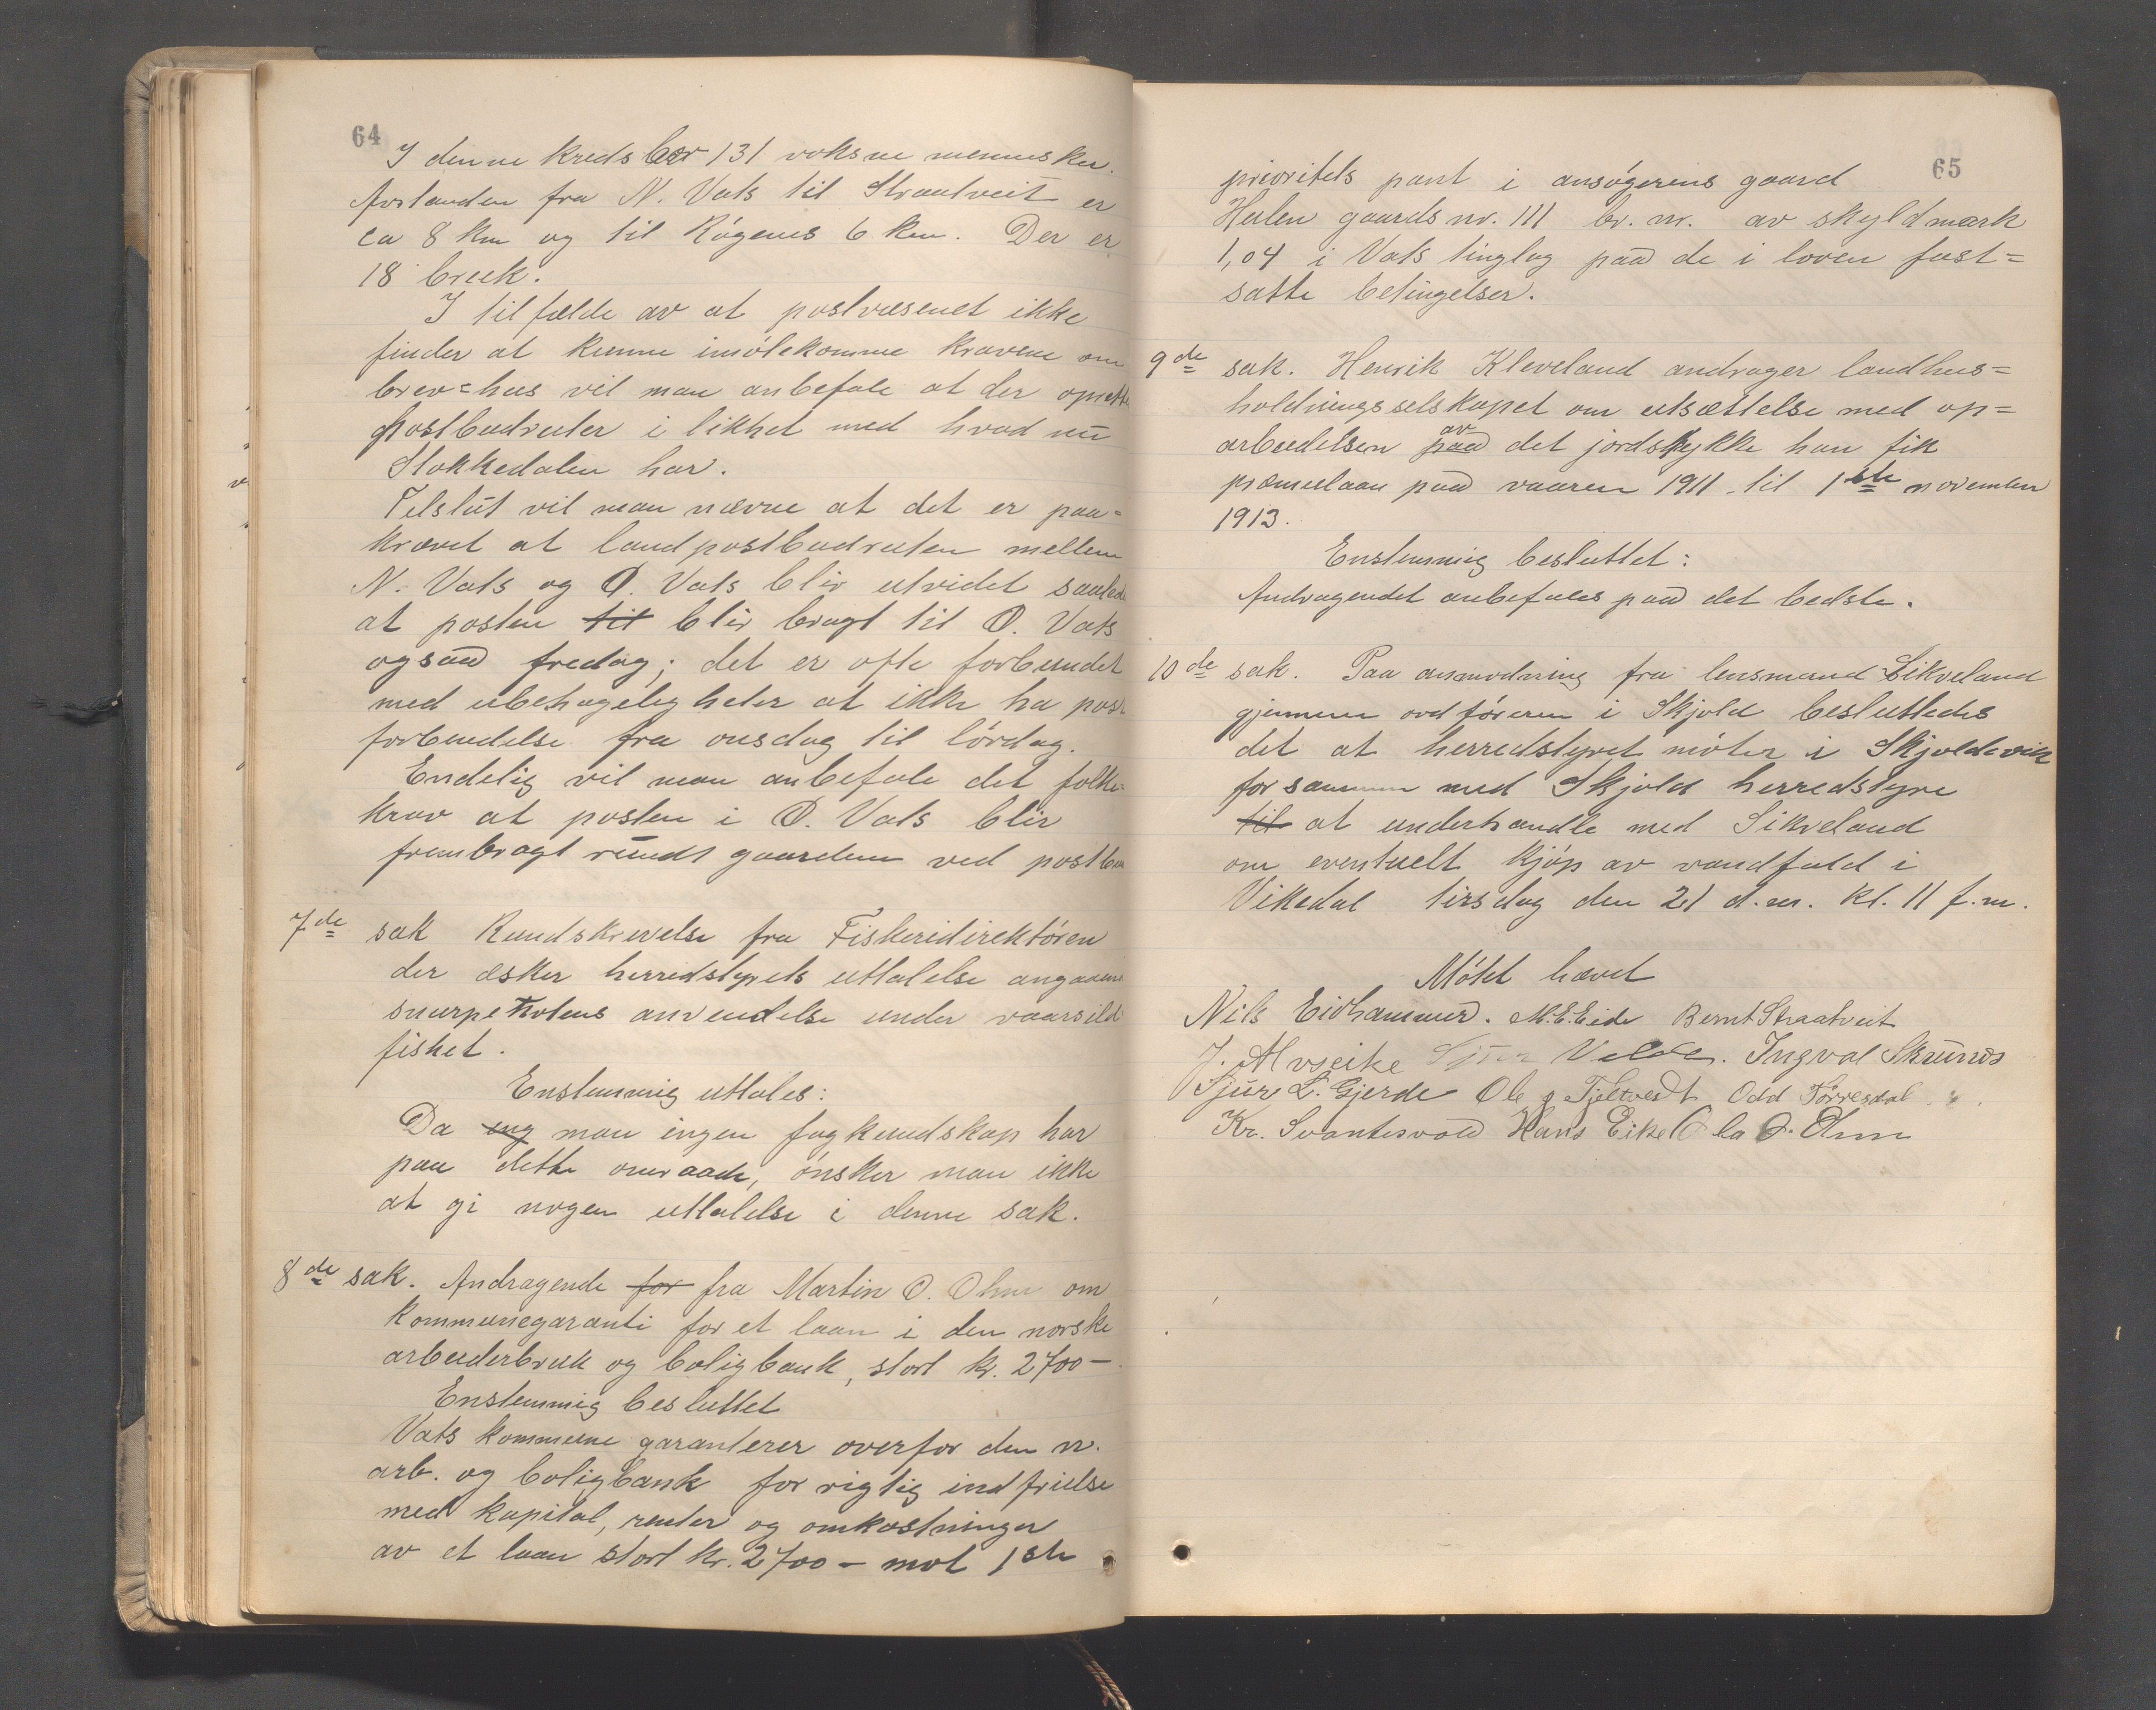 64
I denne kreds bor 131 voksne mennesker.
Avstanden fra N. Vats til Straatveit er
ca 8 km og til Røgenes 6 km. Der er
18 bruk.
I tilfælde av at postvæsenet ikke
finder at kunne imøtekomme kravene om
brev=hus vil man anbefale at der oprettes
postbudruter i likhet med hvad nu
Stokkedalen har.
Tilslut vil man nævne at det er paa=
krævet at landpostbudruten mellem
N. Vats og Ø. Vats blir utvidet saaledes
at posten til blir bragt til Ø. Vats
ogsaa fredag; det er ofte forbundet
med ubehageligheter at ikke ha post
forbindelse fra onsdag til lørdag.
Endelig vil man anbefale det folke=
krav at posten i Ø. Vats blir
frembragt rundt gaardene ved postbud
7de sak Rundskrivelse fra Fiskeridirektøren
der æsker herredstyrets uttalelse angaaende
snurpenotens anvendelse under vaarsild
fisket.
Enstemmig uttales:
Da ing man ingen fagkundskap har
paa dette omraade, ønsker man ikke
at gi nogen uttalelse i denne sak.
8de sak. Andragende for fra Martin O. Ohm om
kommunegaranti for et laan i den norske
arbeiderbruk og boligbank, stort kr. 2700 –
Enstemmig besluttet
Vats kommune garanterer overfor den n.
arb. og boligbank for rigtig indfrielse
med kapital, renter og omkostninger
av et laan stort kr. 2700 – mot 1ste
65
prioritets pant i ansøgerens gaard
gaards nr. 111 br. nr. av skyldmark
1,04 i Vats tinglag paa de i loven fast=
satte betingelser.
9de sak. Henrik Kleveland andrager landhus=
holdningsselskapet om utsættelse med op=
arbeidelsen paa av det jordstykke han fik
præmielaan paa vaaren 1911 til 1ste november
1913.
Enstemmig besluttet:
Andragendet anbefales paa det bedste.
10de sak. Paa anmodning fra lensmand Sikveland
gjennem ordføreren i Skjold besluttedes
det at herredstyret møter i Skjoldevik
for sammen med Skjold herredstyre
til at underhandle med Sikveland
om eventuelt kjøp av vandfald i
Vikedal tirsdag den 21 d.m. kl. 11 f.m.
Møtet hævet
Nils Eidhammer. M.E. Eide Bernt Straatveit
J. Alvseike Sjur Velde. Ingval Skrunes
Sjur L. Gjerde Ole J Tjeltveit Odd Tørresdal
Kr. Svantesvold Hans Eike Ola O. Ohm